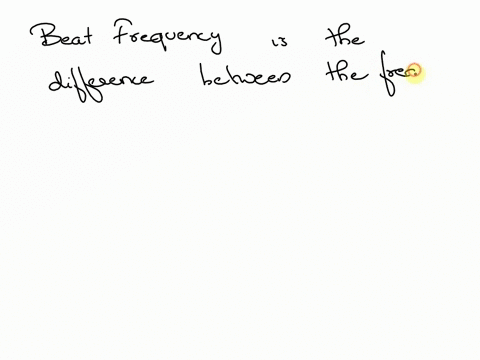 Beat Frequency is the
difference between the freq